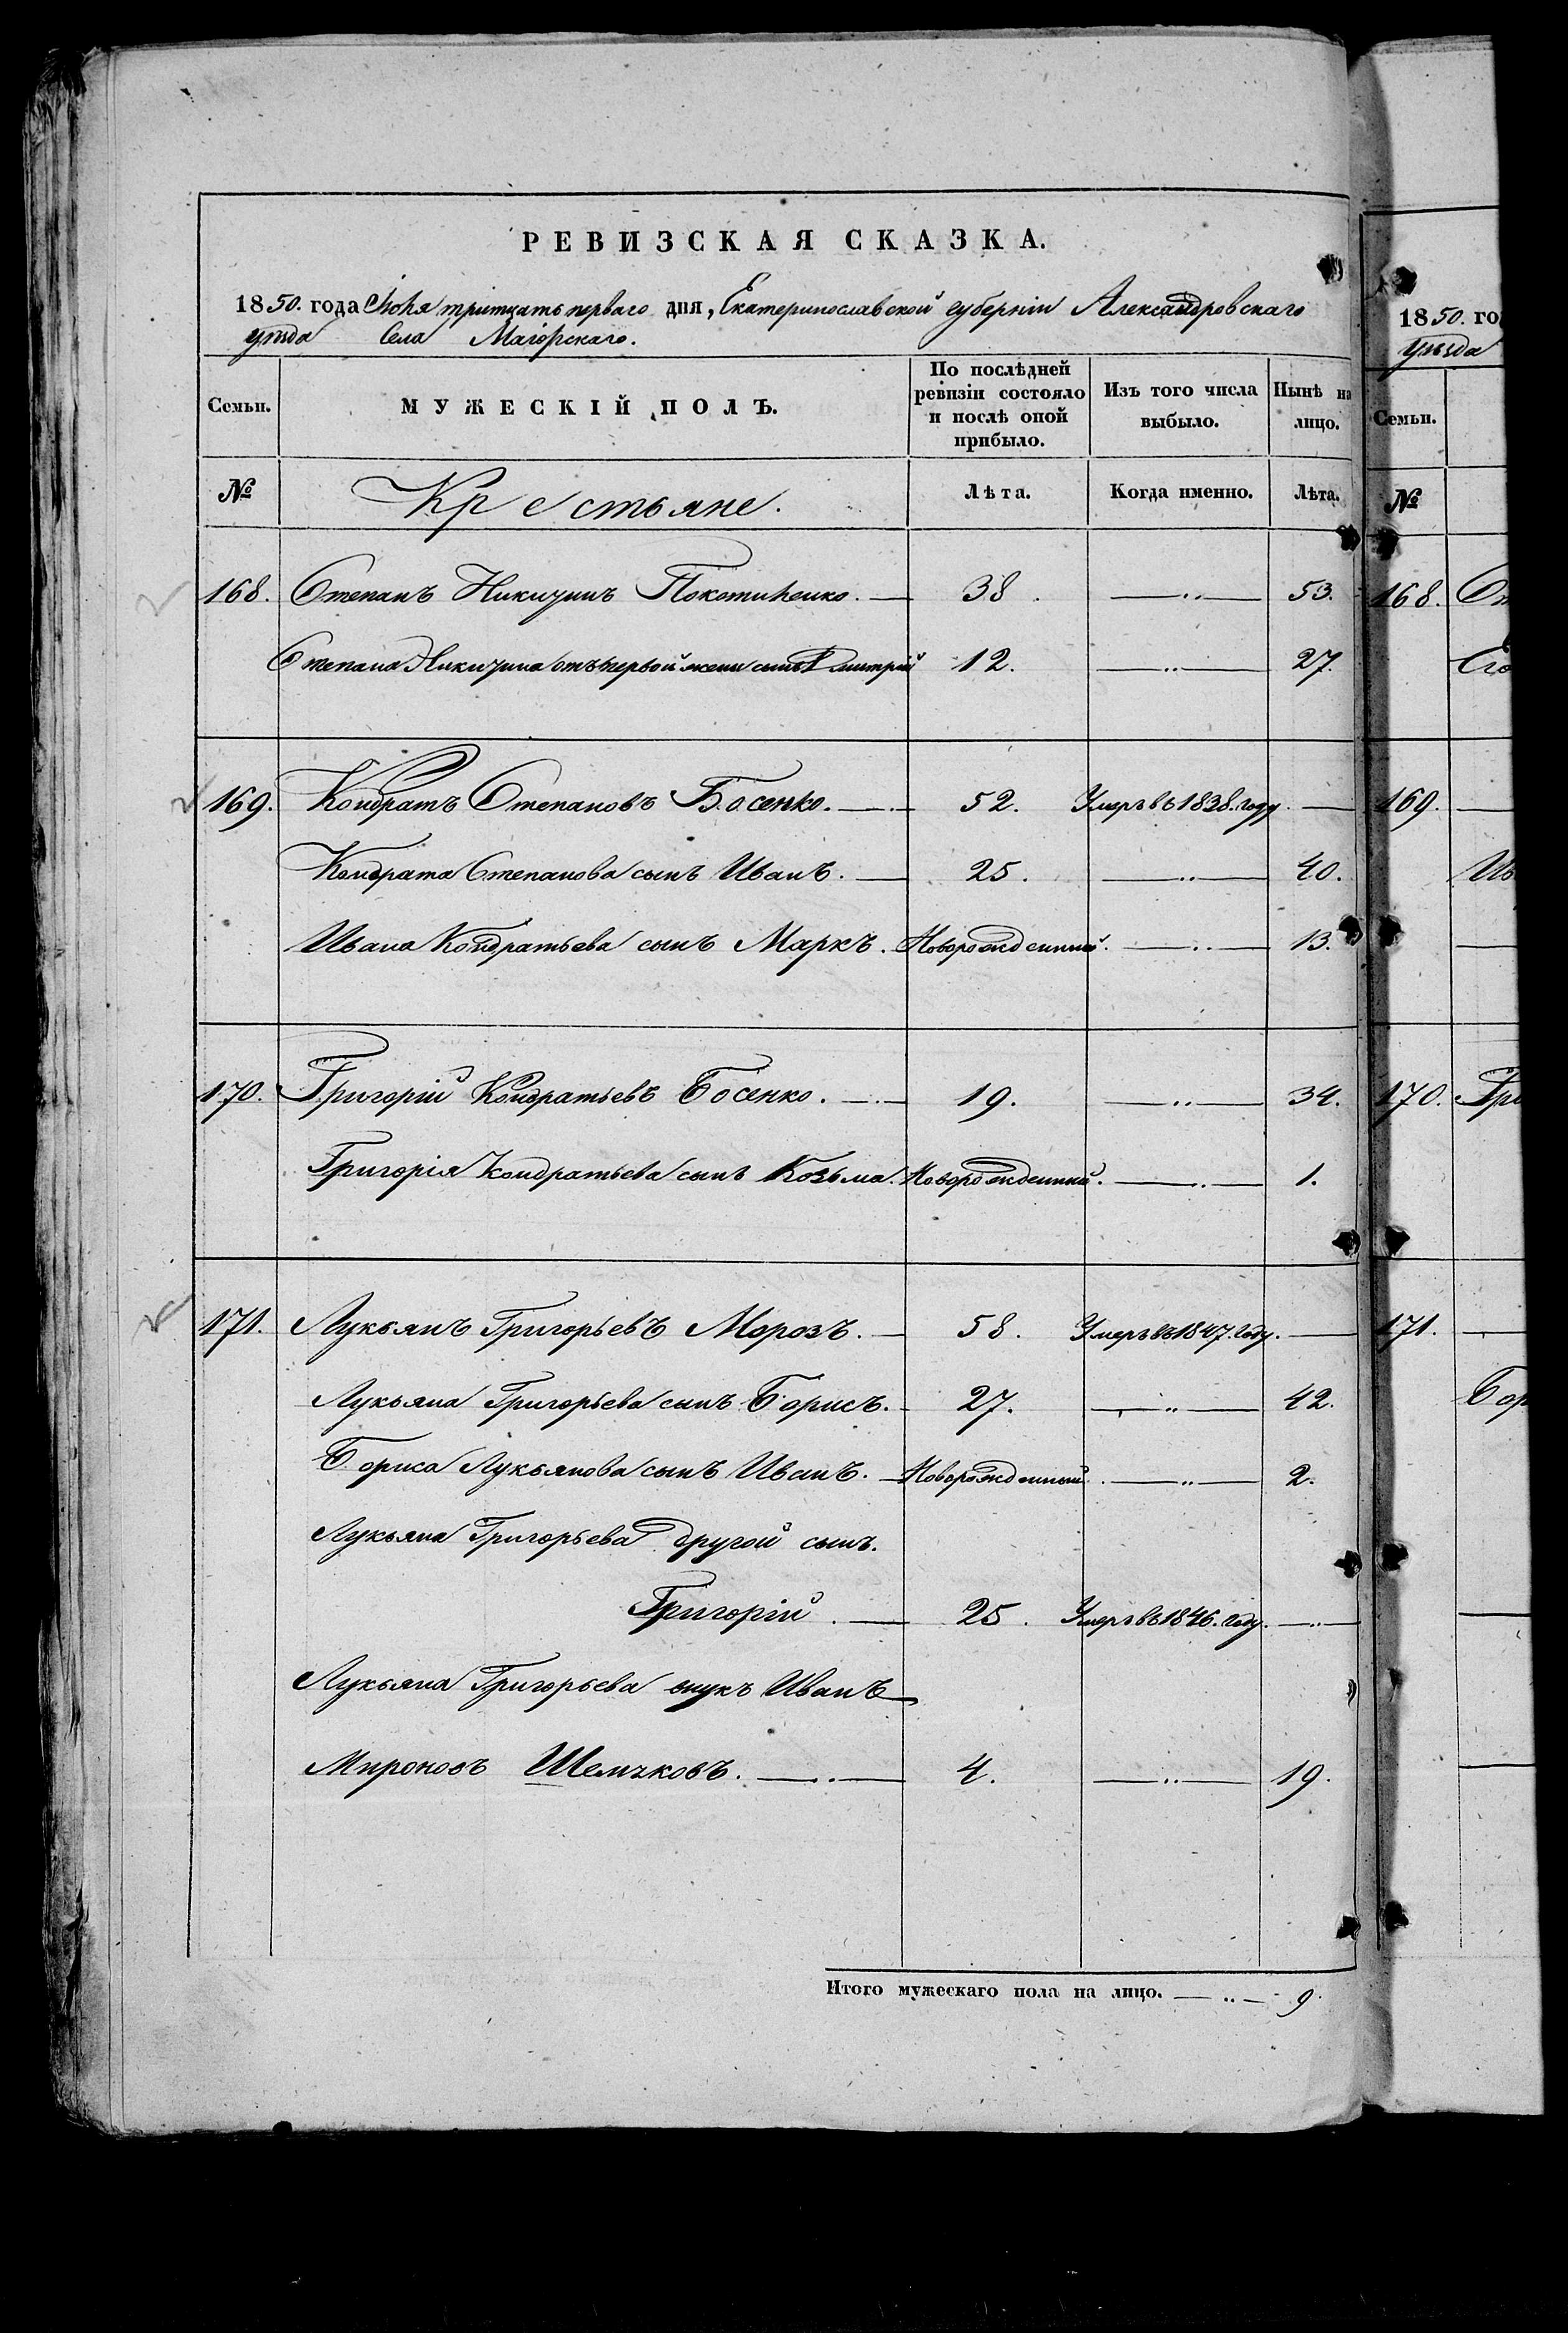 РЕВИЗСКАЯ СКАЗКА.
1850. года Июля тритцать перваго дня, Екатеринославской губерніи Александровскаго
уѣзда Села Маіорскаго.
Семьи. МУЖЕСКІЙ ПОЛЪ. По послѣдней ревизіи состояло и послѣ оной прибыло. Изъ того числа выбыло. Нынѣ на лицо.
№ Крестьяне. Лѣта. Когда именно. Лѣта.
168. Степанъ Никитинъ 38. —„— 53.
Степана Никитина отъ первой жены сынъ Дмитрій 12. —„— 27.
169. Кондратъ Степановъ Босенко. — 52. Умеръ въ 1838. году. —
Кондрата Степанова сынъ Иванъ. — 25. —„— 40.
Ивана Кондратьева сынъ Маркъ. Новорожденный. —„— 13.
170. Григорій Кондратьевъ Босенко. — 19. —„— 34.
Григорія Кондратьева сынъ Козьма. Новорожденный. —„— 1.
171. Лукьянъ Григорьевъ Морозъ. — 58. Умеръ въ 1847. году. —
Лукьяна Григорьева сынъ Борисъ. — 27. —„— 42.
Бориса Лукьянова сынъ Иванъ. — Новорожденный. —„— 2.
Лукьяна Григорьева другой сынъ.
Григорій. — 25. Умеръ въ 1846. году. —„—
Лукьяна Григорьева внукъ Иванъ
Мироновъ —„— 4. —„— 19.
Итого мужескаго пола на лицо. —„— 9.
1850. го
Уѣзда
Семьи.
№
168. Ст
Его
169. —
Ив
170. Гри
171. —
Бор